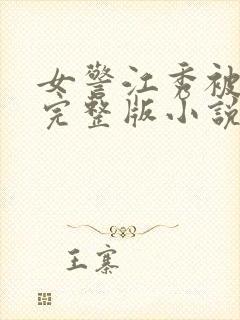 女警江秀被
完整版小説
王寨